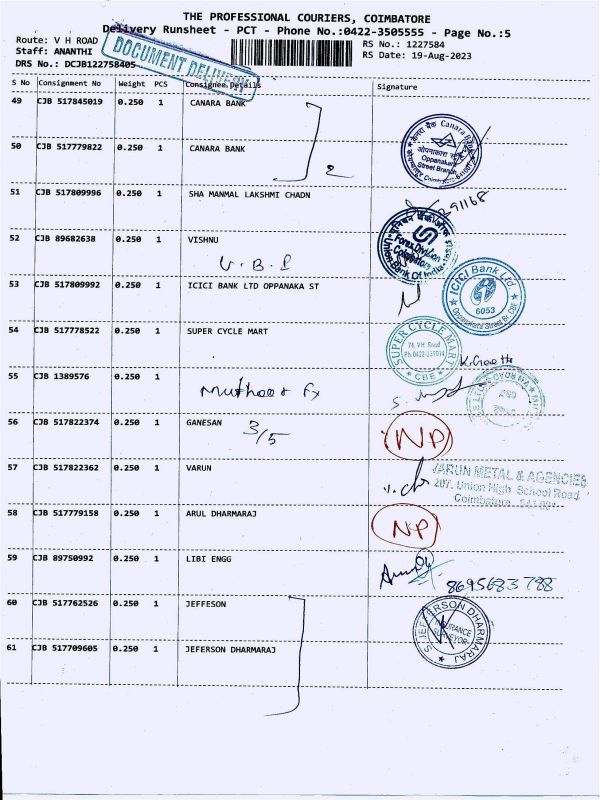 THE PROFESSIONAL COURIERS, COIMBATORE
Delivery Runsheet - PCT - Phone No.:0422-3505555 - Page No.:5
Route: V H ROAD
RS No.: 1227584
Staff: ANANTHI
RS Date: 19-Aug-2023
DRS No.: DCJB122758405
DOCUMENT DELIVERY
S No Consignment No Weight PCS Consignee Details Signature
49 CJB 517845019 0.250 1 CANARA BANK
50 CJB 517779822 0.250 1 CANARA BANK
2
केनरा बैंक Canara Bank
Oppanakara
Street Branch
51 CJB 517809996 0.250 1 SHA MANMAL LAKSHMI CHADN
91168
52 CJB 89682638 0.250 1 VISHNU
U.B.I
Forex Division
Coimbatore
Union Bank Of India
53 CJB 517809992 0.250 1 ICICI BANK LTD OPPANAKA ST
ICICI Bank Ltd
6053
Oppanakara Street Br. CBE
54 CJB 517778522 0.250 1 SUPER CYCLE MART
SUPER CYCLE MART
74, V.H. Road
CBE
K. Geetha
55 CJB 1389576 0.250 1
Muthoot Fx
56 CJB 517822374 0.250 1 GANESAN
3/5
NP
57 CJB 517822362 0.250 1 VARUN
VARUN METAL & AGENCIES
207, Union High School Road
Coimbatore - 641 001
58 CJB 517779158 0.250 1 ARUL DHARMARAJ
NP
59 CJB 89750992 0.250 1 LIBI ENGG
8695683788
60 CJB 517762526 0.250 1 JEFFESON
S. JEFFERSON DHARMARAJ
INSURANCE
SURVEYOR
61 CJB 517709605 0.250 1 JEFERSON DHARMARAJ